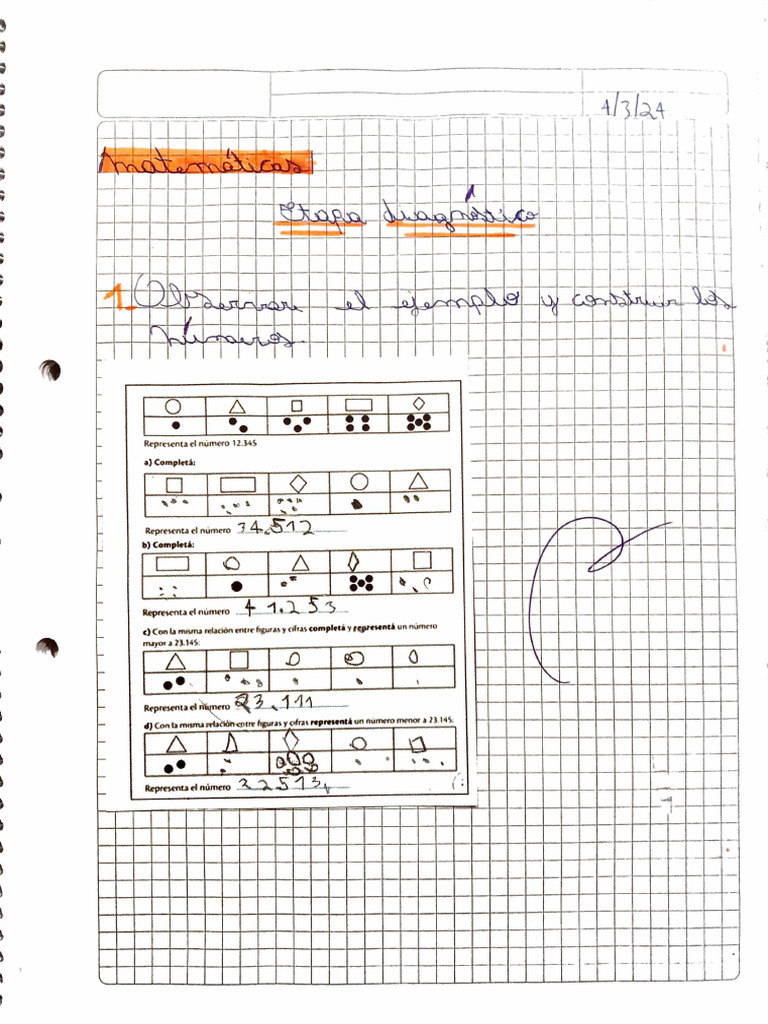 4/3/24
Matemáticas
Etapa diagnóstico
1. Observar el ejemplo y construir los
números.
Representa el número 12.345
a) Completá:
Representa el número 34.512
b) Completá:
Representa el número 41.253
c) Con la misma relación entre figuras y cifras completá y representá un número
mayor a 23.145:
Representa el número 23.111
d) Con la misma relación entre figuras y cifras representá un número menor a 23.145:
Representa el número 22513